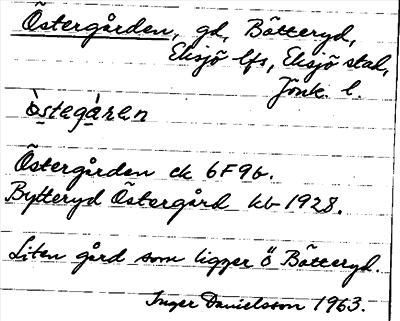 Östergården, gd, Bötteryd,
Eksjö lfs, Eksjö stad,
Jönk. l.
òstegàṛen
Östergården ek 6F9b.
Bytteryd Östergård kb 1928.
Liten gård som ligger ö Bötteryd.
Inger Danielsson 1963.